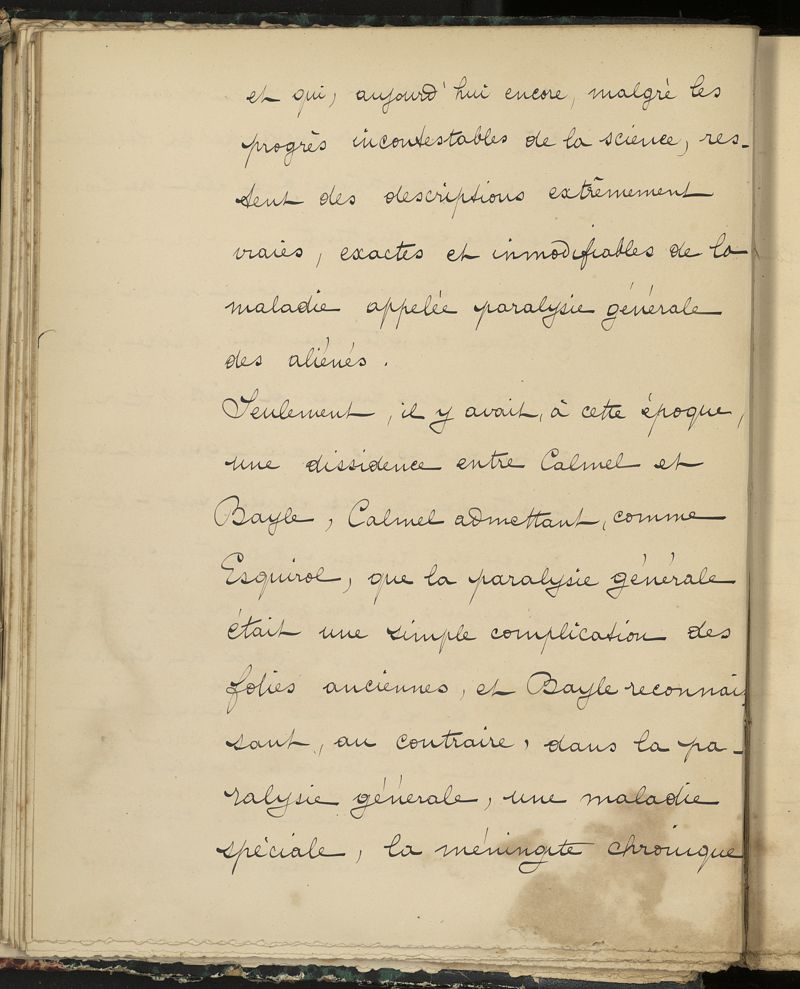 et qui, aujourd'hui encore, malgré les
progrès incontestables de la science, res-
tent des descriptions extrêmement
vraies, exactes et inmodifiables de la
maladie appelée paralysie générale
des aliénés.
Seulement, il y avait, à cette époque,
une dissidence entre Calmel et
Bayle, Calmel admettant, comme
Esquirol, que la paralysie générale
était une simple complication des
folies anciennes, et Bayle reconnais
sant, au contraire, dans la pa-
ralysie générale, une maladie
spéciale, la méningite chronique